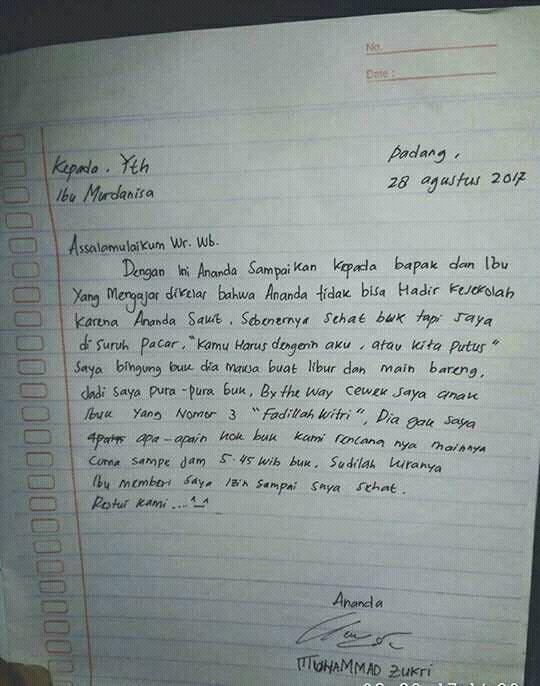 No.
Date :
Padang,
28 agustus 2017
Kepada. Yth
Ibu Murdanisa
Assalamulaikum Wr. Wb.
Dengan Ini Ananda Sampaikan Kepada bapak dan Ibu
Yang Mengajar dikelas bahwa Ananda tidak bisa Hadir Kesekolah
Karena Ananda Sakit. Sebenernya Sehat buk tapi saya
di suruh pacar. "Kamu Harus dengerin aku, atau kita Putus"
Saya bingung buk dia maksa buat libur dan main bareng.
Jadi saya pura-pura buk, By the way cewek saya anak
Ibuk Yang Nomor 3 "Fadillah Witri", Dia gak saya
apa-apain kok buk kami rencana nya mainnya
Cuma sampe Jam 5.45 Wib buk. Sudilah kiranya
Ibu memberi saya Izin Sampai Saya Sehat.
Restui Kami ... ^_^
Ananda
MUHAMMAD Zukri